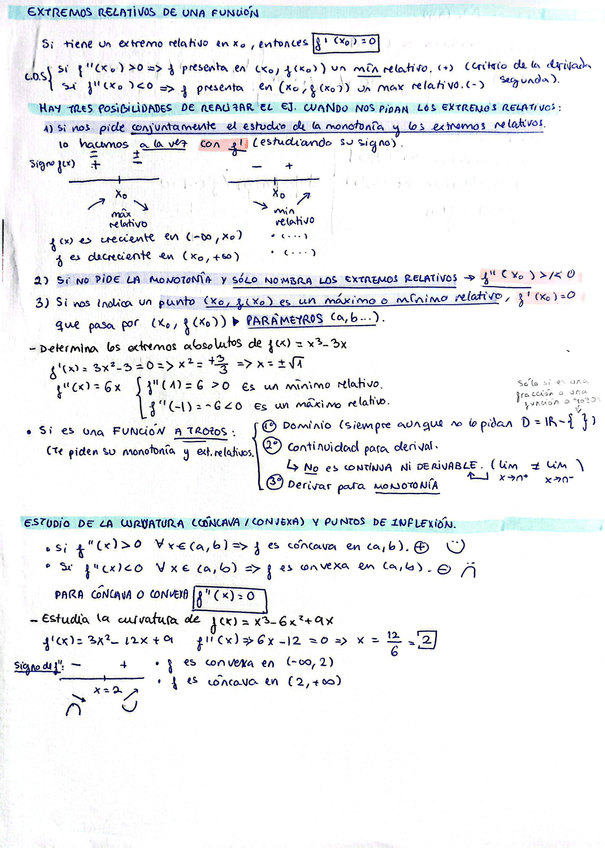 EXTREMOS RELATIVOS DE UNA FUNCIÓN
Si tiene un extremo relativo en x₀, entonces f'(x₀)=0
C.D.S. { Si f''(x₀)>0 => f presenta en (x₀, f(x₀)) un mín relativo. (+) (Criterio de la derivada
Si f''(x₀)<0 => f presenta en (x₀, f(x₀)) un max relativo. (-) segunda).
HAY TRES POSIBILIDADES DE REALIZAR EL EJ. CUANDO NOS PIDAN LOS EXTREMOS RELATIVOS:
1) Si nos pide conjuntamente el estudio de la monotonía y los extremos relativos.
lo hacemos a la vez con f' (estudiando su signo).
Signo f(x) + ± - +
x₀ x₀
máx relativo min relativo
f(x) es creciente en (-∞, x₀) • (...)
f es decreciente en (x₀, +∞) • (...)
2) SI NO PIDE LA MONOTONÍA Y SÓLO NOMBRA LOS EXTREMOS RELATIVOS → f''(x₀) >/< 0
3) Si nos indica un punto (x₀, f(x₀)) es un máximo o mínimo relativo, f'(x₀)=0
que pasa por (x₀, f(x₀)) ▶ PARÁMETROS (a, b...).
- Determina los extremos absolutos de f(x) = x³-3x
f'(x) = 3x²-3=0 => x² = +3/3 => x = ±√1
f''(x) = 6x { f''(1) = 6 > 0 Es un mínimo relativo.
f''(-1) = -6<0 Es un máximo relativo.
Sólo si es una fracción o una función a trozos
• Si es una FUNCIÓN A TROZOS: { 1º Dominio (siempre aunque no lo pidan D = IR - { })
(Te piden su monotonía y ext. relativos. 2º Continuidad para derivar.
↳ NO es CONTINUA NI DERIVABLE. (lim x→n⁺ ≠ lim x→n⁻)
3º Derivar para MONOTONÍA
ESTUDIO DE LA CURVATURA (CÓNCAVA/CONVEXA) Y PUNTOS DE INFLEXIÓN.
• Si f''(x)>0 ∀x∈(a,b) => f es cóncava en (a,b). ⊕
• Si f''(x)<0 ∀x∈(a,b) => f es convexa en (a,b). ⊖
PARA CÓNCAVA O CONVEXA f''(x) = 0
- Estudia la curvatura de f(x) = x³-6x²+9x
f'(x) = 3x²-12x+9 f''(x) => 6x-12 = 0 => x = 12/6 = 2
Signo de f'': - + • f es convexa en (-∞, 2)
x = 2 • f es cóncava en (2, +∞)